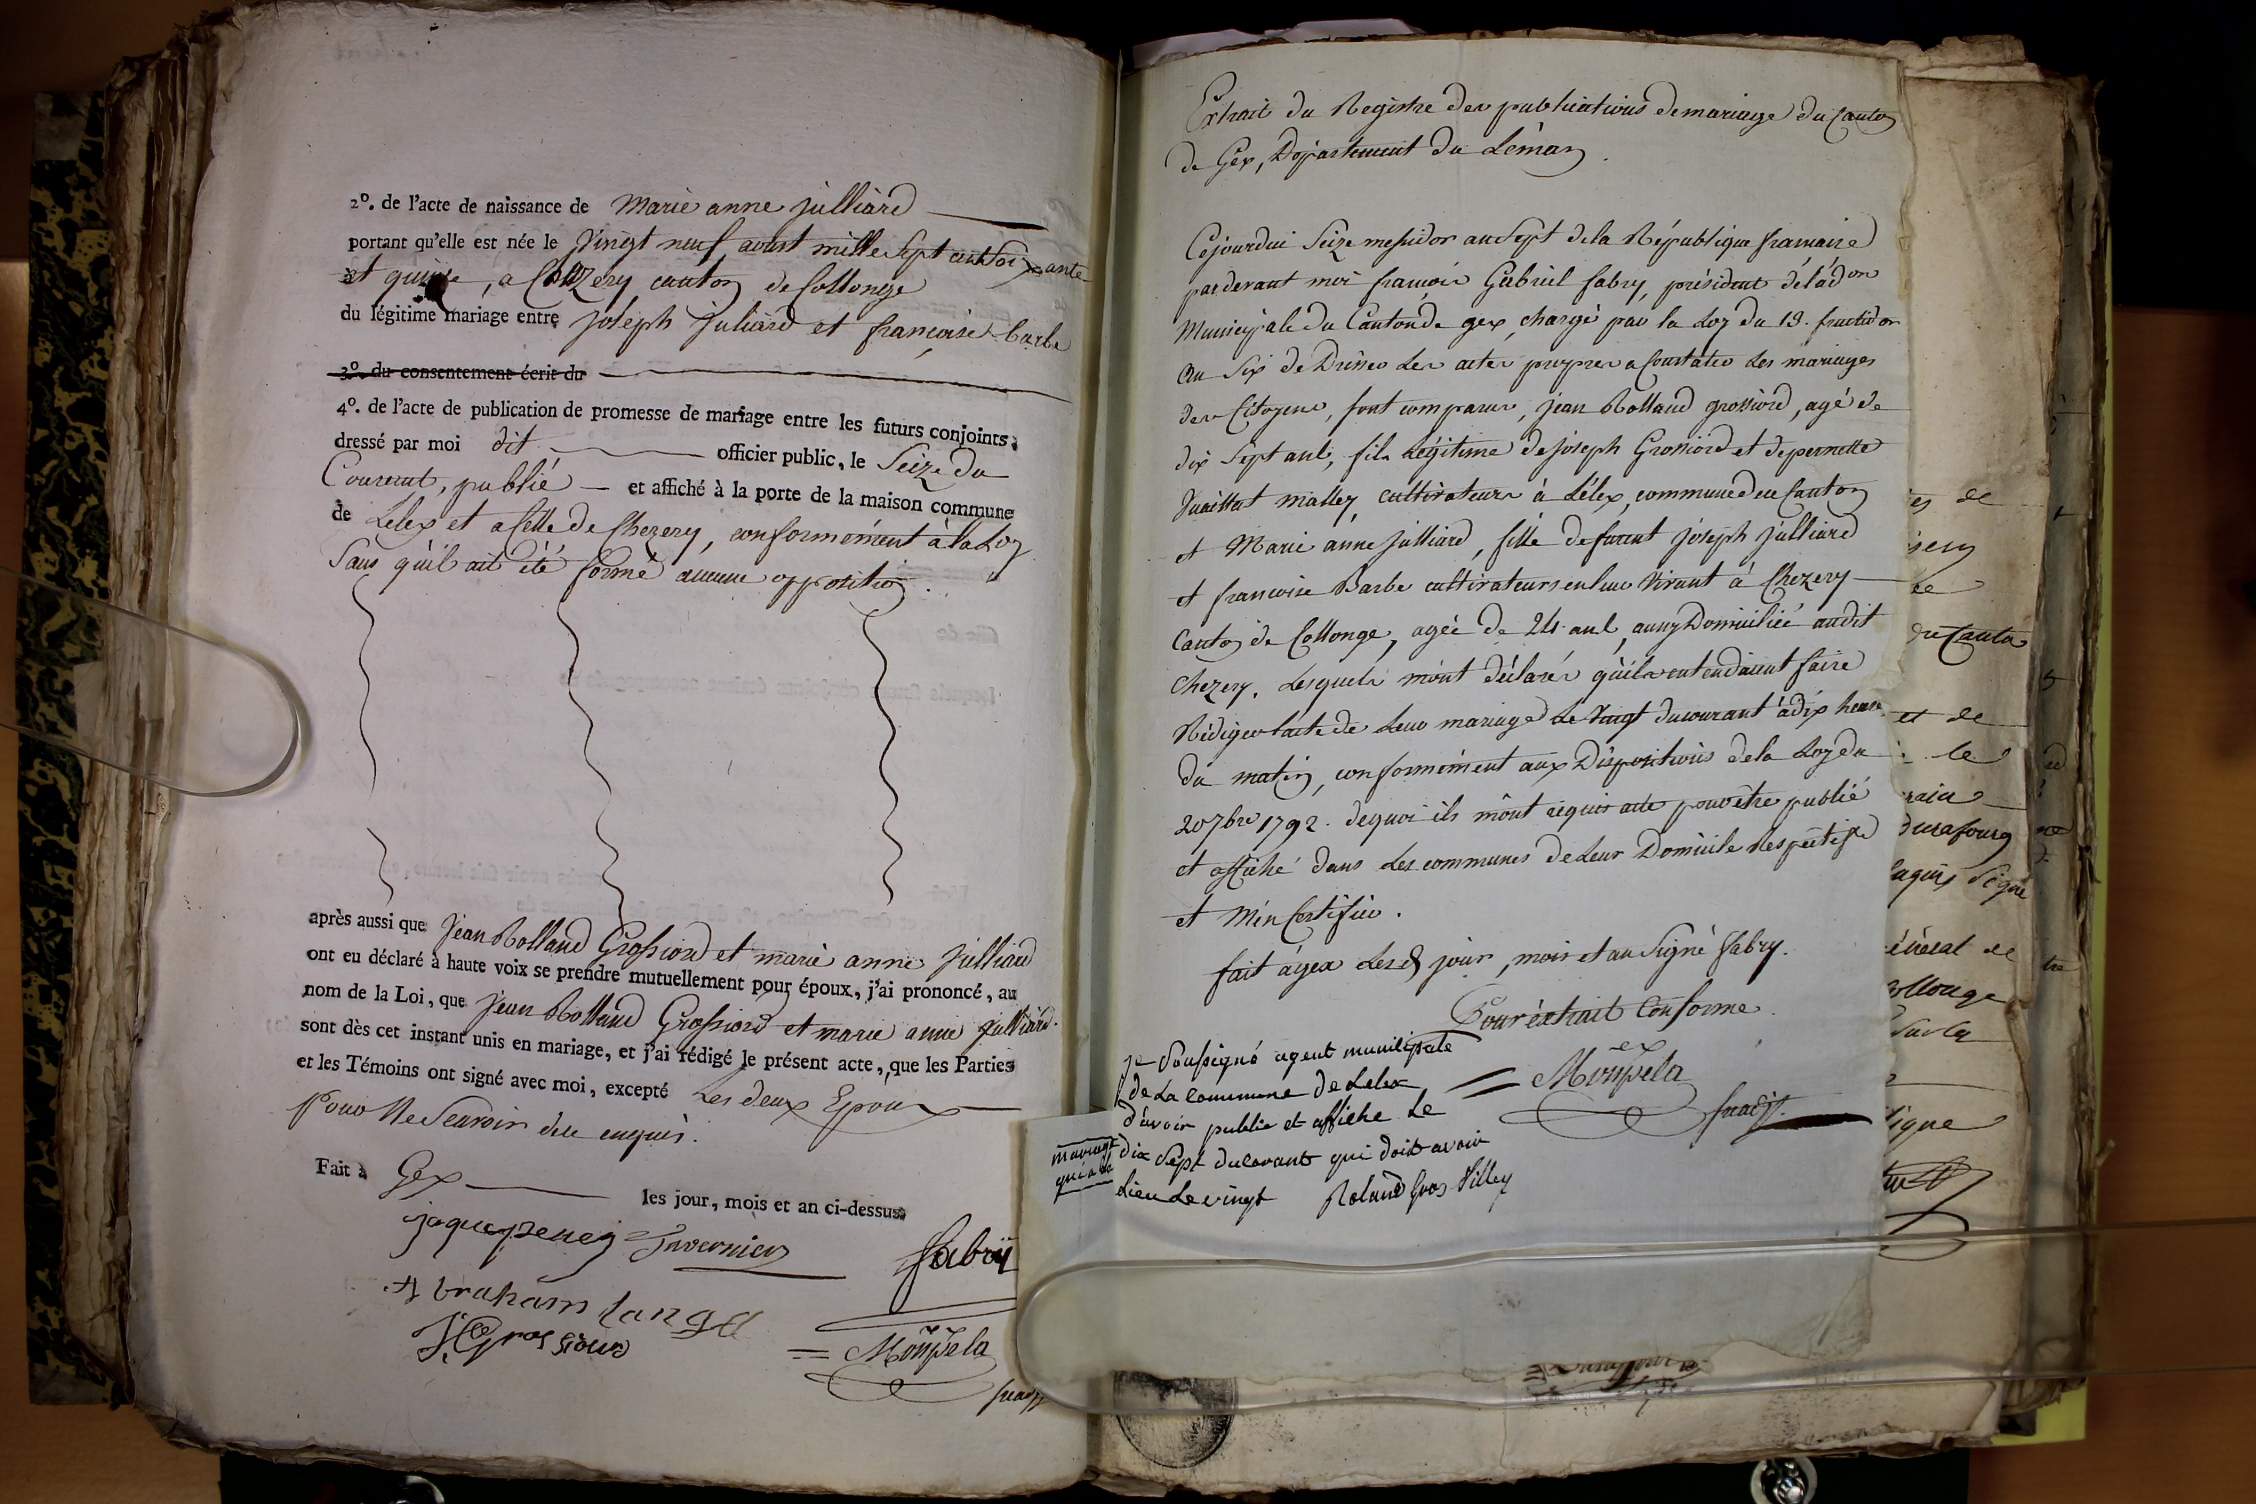 2º. de l'acte de naissance de Marie anne julliard
portant qu'elle est née le vingt neuf aoust mille Sept cent Soixante
et quinze, a Chezery canton de Collonge
du légitime mariage entre joseph juliard et francoise barbe
3º. du consentement écrit du
4º. de l'acte de publication de promesse de mariage entre les futurs conjoints,
dressé par moi dit officier public, le Seize du
Courant, publié et affiché à la porte de la maison commune
de Lelex et a Celle de Chezery, conformément à la Loy
Sans qu'il ait été formé aucune opposition.
après aussi que Jean Rolland Grossiord et marie anne julliard
ont eu déclaré à haute voix se prendre mutuellement pour époux, j'ai prononcé, au
nom de la Loi, que Jean Rolland Grossiord et marie anne julliard.
sont dès cet instant unis en mariage, et j'ai rédigé le présent acte, que les Parties
et les Témoins ont signé avec moi, excepté Les deux Epoux
Pour Ne Scavoir de ce enquis.
Fait à Gex les jour, mois et an ci-dessus
fabry
Abraham Lange
J. Grossiord
Mouÿela
Extrait du Registre des publications de mariage du Canton
de Gex, Département du Léman.
Cejourdui Seize messidor an Sept de la République francaise
par devant moi francois Gabriel fabry, président de l'adon
Municipale du Canton de gex, chargé par la Loy du 13. fructidor
an Six de Dresser Les actes propres a Constater Les mariages
des Citoyens, sont comparus, jean Rolland grossiord, agé de
dix Sept ans, fils légitime de joseph Grossiord et de pernette
Juaillat malley, cultivateurs à Lélex, commune de ce Canton
et Marie anne julliard, fille de furent joseph julliard
et francoise Barbe cultivateurs en leur vivant à Chezery
Canton de Collonge, agée de 24 ans, aussy Domiciliée audit
Chezery. Lesquels m'ont déclarés qu'ils entendaient faire
Rédiger l'acte de Leur mariage Le Vingt du courant à dix heures
du matin, conformément aux Dispositions de la Loy du
20 7bre 1792. de quoi ils m'ont requis acte pour être publié
et affiché dans Les communes de Leur Domicile Respectifs
et M'en Certifier.
fait à gex Lesd jour, mois et an Signé fabry.
Pour éxtrait Conforme.
Mouÿela
je Soussigné agent municipale
de La commune de Lelex
d'avoir publie et affiche Le
mariage dix Sept du corant qui doit avoir
qui a
Lieu Le vingt Roland Gros Tilley
du Canton
et de
le